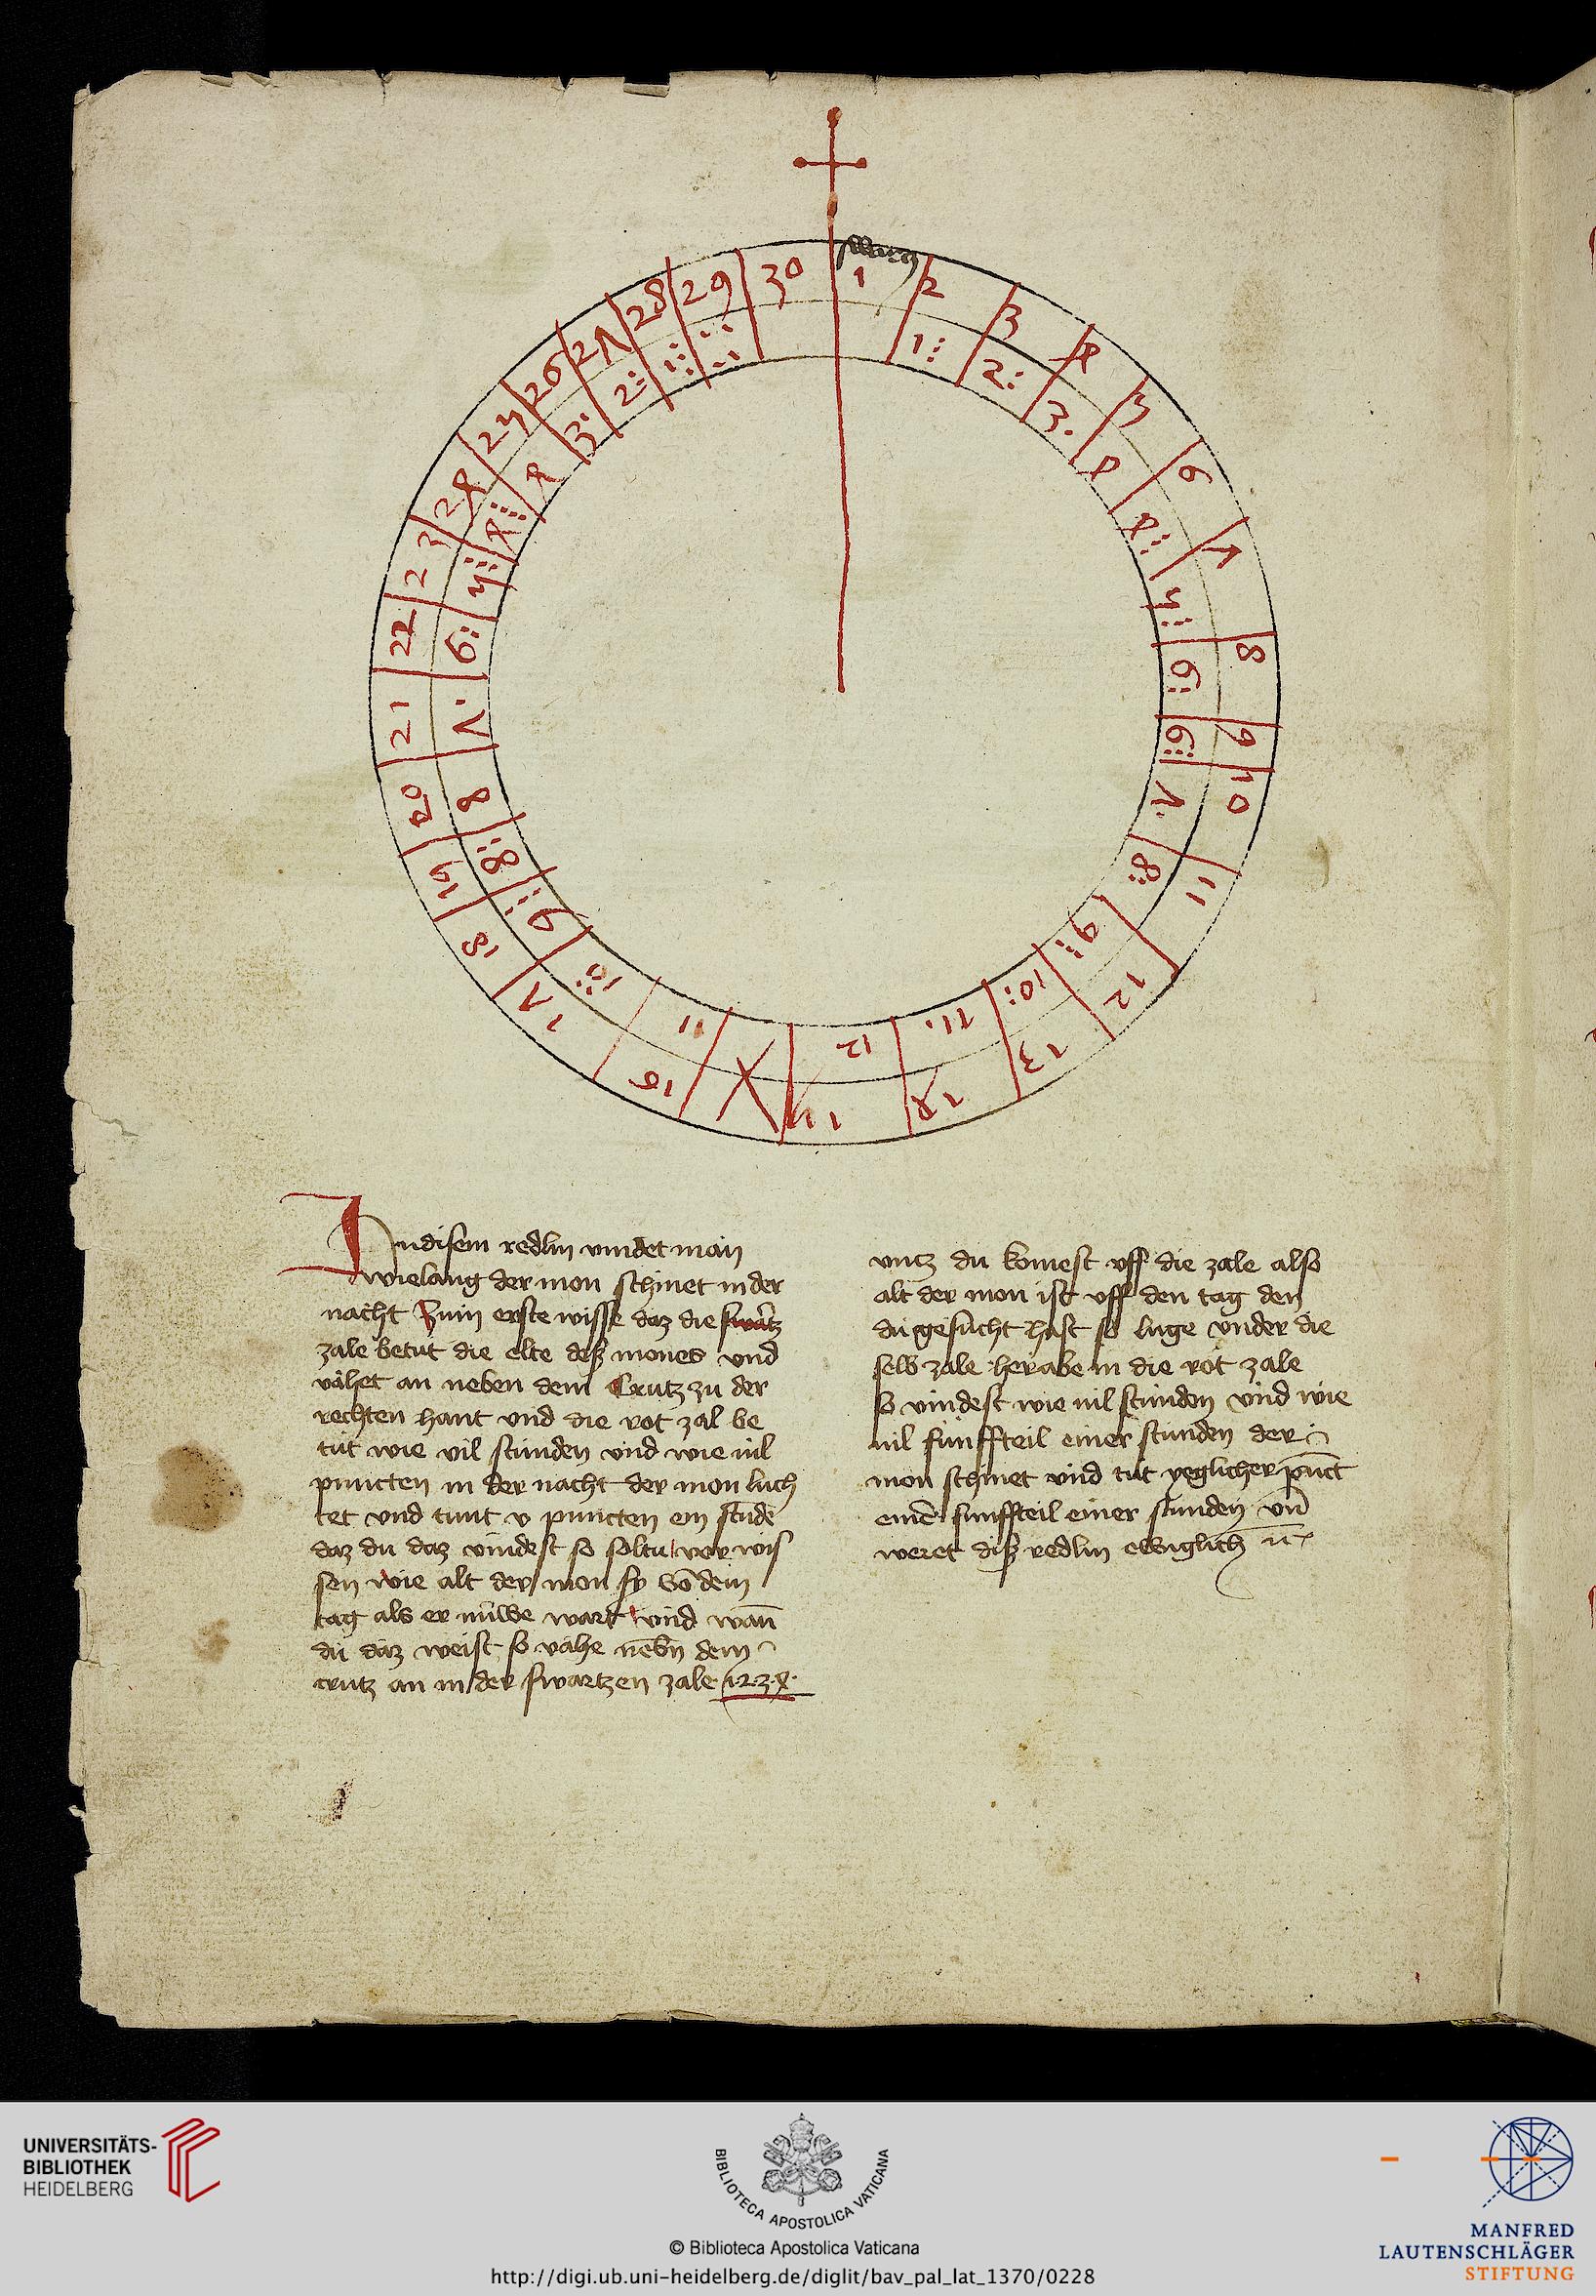 swartz
1
2
3
4
5
6
7
8
9
10
11
12
13
14
15
16
17
18
19
20
21
22
23
24
25
26
27
28
29
30
1⁝
2:
3.
4
4:
5
6
6
7.
8
9
10:
11.
12
11
10
9
8
8
7.
6:
5
4
4
3
2
1
Indisem redlin vindet man
wielang der mon schinet in der
nacht Zum erste wisse daz die swartz
zale betut die elte desz mones vnd
vahet an neben dem Crutz zu der
rechten hant vnd die rot zal be
tut wie vil stunden vnd wie vil
puncten in der nacht der mon luch
tet vnd tunt v puncten ein stude
daz du daz vindest so soltu vor wis
sen wie alt der mon sy vō dem
tag als er nuwe wart vnd wan̄
du daz weist so vahe nebn dem
crutz an in der swartzen zale 1·2·3·4·
vntz du komest vff die zale also
alt der mon ist vff den tag den
du gesucht hast so luge vnder die
selb zale herabe in die rot zale
so vindest wie vil stunden vnd wie
vil funffteil einer stunden der
mon schinet vnd tut yeglicher punct
einē funffteil einer stunden vn̄
weret disz redlin ewenglich
UNIVERSITÄTS-
BIBLIOTHEK
HEIDELBERG
BIBLIOTECA APOSTOLICA VATICANA
© Biblioteca Apostolica Vaticana
http://digi.ub.uni-heidelberg.de/diglit/bav_pal_lat_1370/0228
MANFRED
LAUTENSCHLÄGER
STIFTUNG